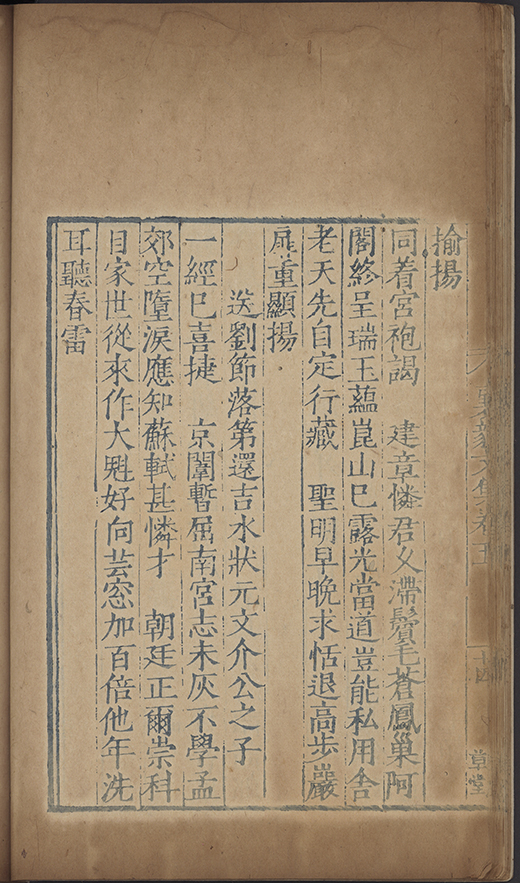 揄揚
同着宮袍謁　建章憐君乂滯鬢毛蒼鳳巢阿
閣終呈瑞玉蘊崑山巳露光當道豈能私用舍
老天先自定行藏　聖明早晚求恬退高步巖
扉重顯揚
送劉節落第還吉水狀元文介公之子
一經巳喜捷　京闈暫屈南宮志未灰不學孟
郊空墮淚應知蘇軾甚憐才　朝廷正爾崇科
目家世從來作大魁好向芸窓加百倍他年洗
耳聽春雷
文集卷五
十四
草堂